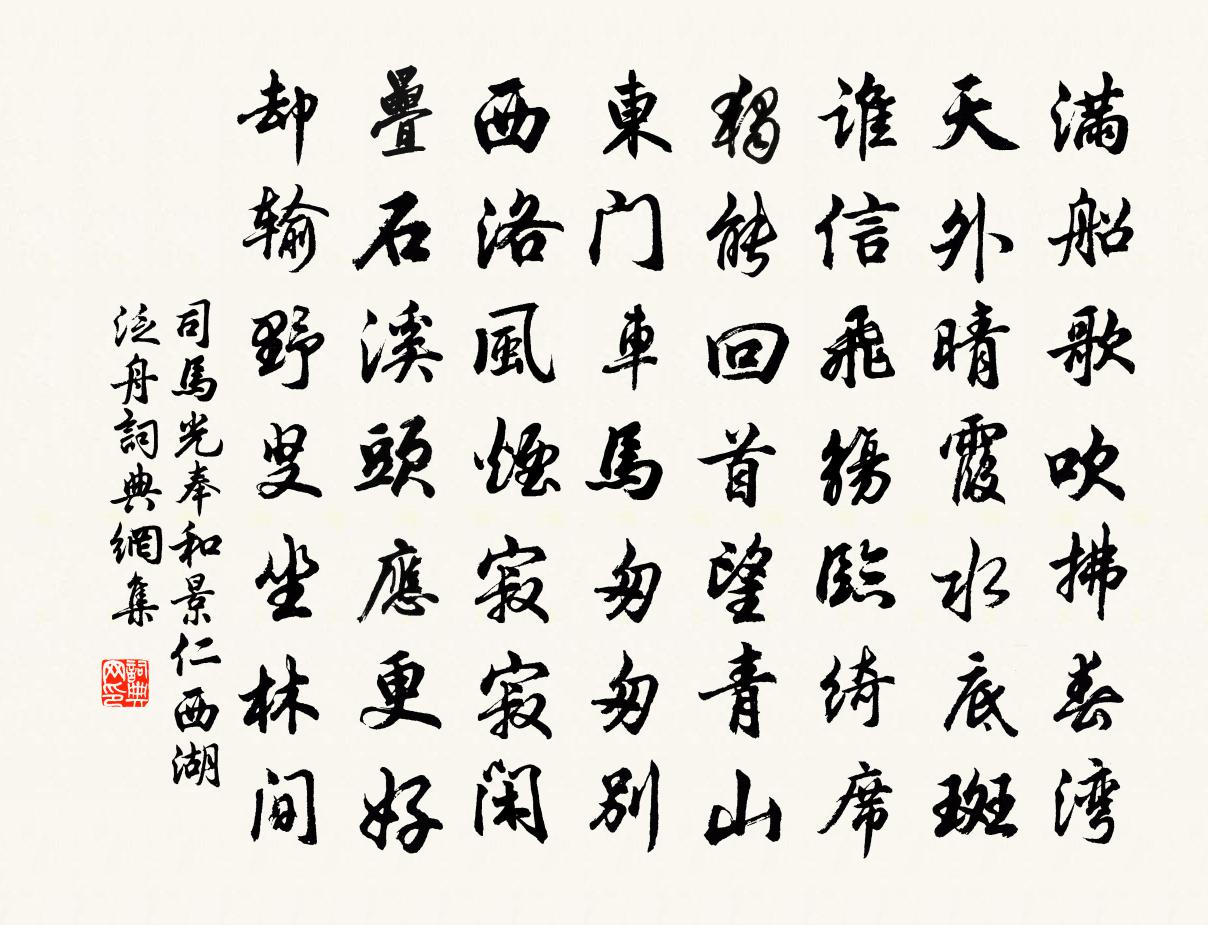 满船歌吹拂春湾
天外晴霞水底斑
谁信飛觴臨綺席
獨能回首望青山
東门車馬匆匆别
西洛風煙寂寂闲
疊石溪頭應更好
却输野叟坐林间
司馬光奉和景仁西湖
泛舟詞典網集
詞典网印